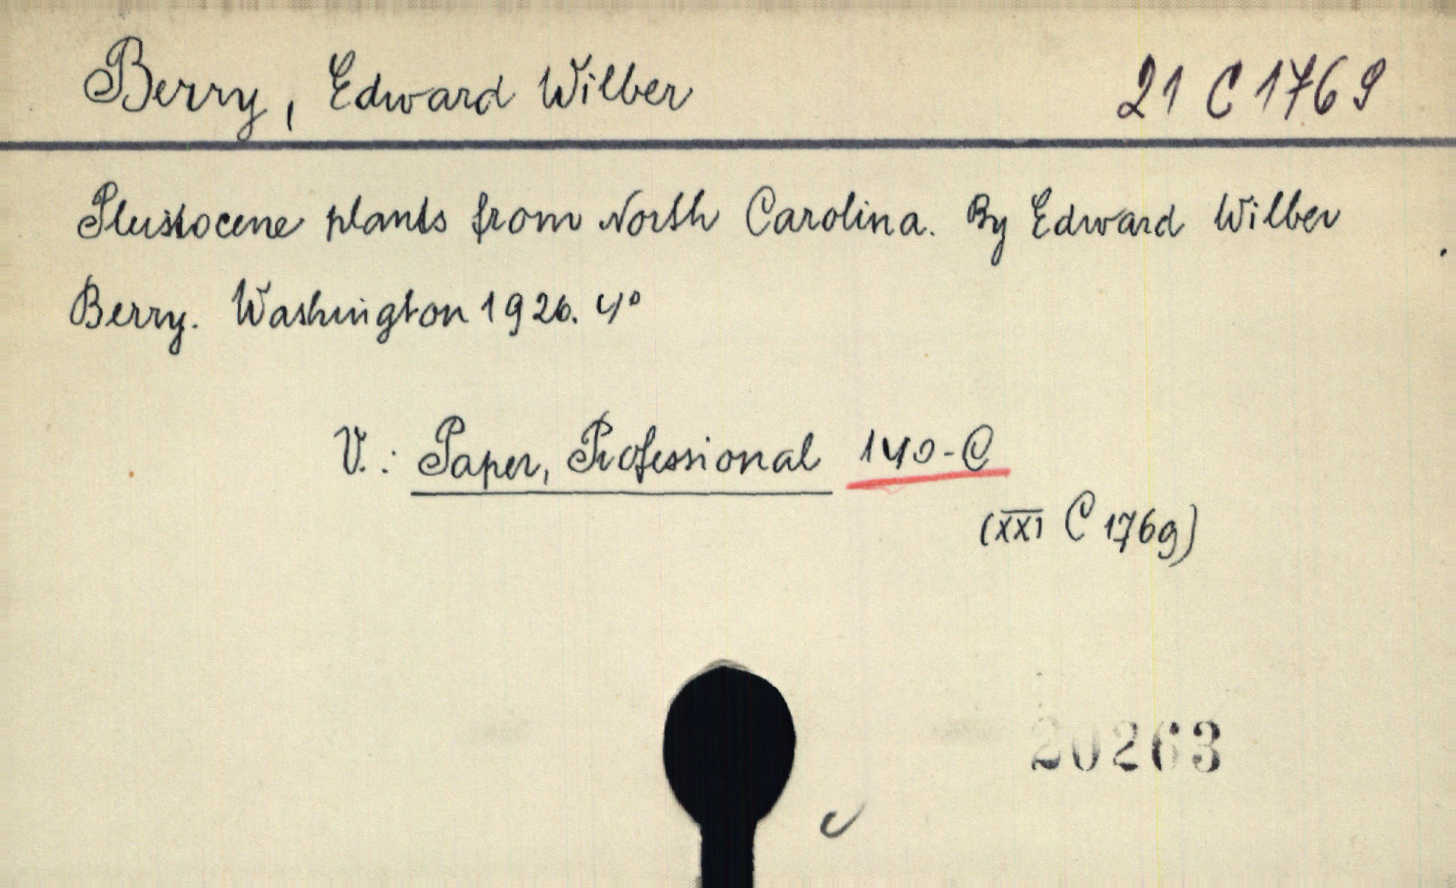 Berry, Edward Wilber 21 C 1769
Pleistocene plants from North Carolina. By Edward Wilber
Berry. Washington 1926. 4°
V.: Paper, Professional 140-C
(XXI C 1769)
20263